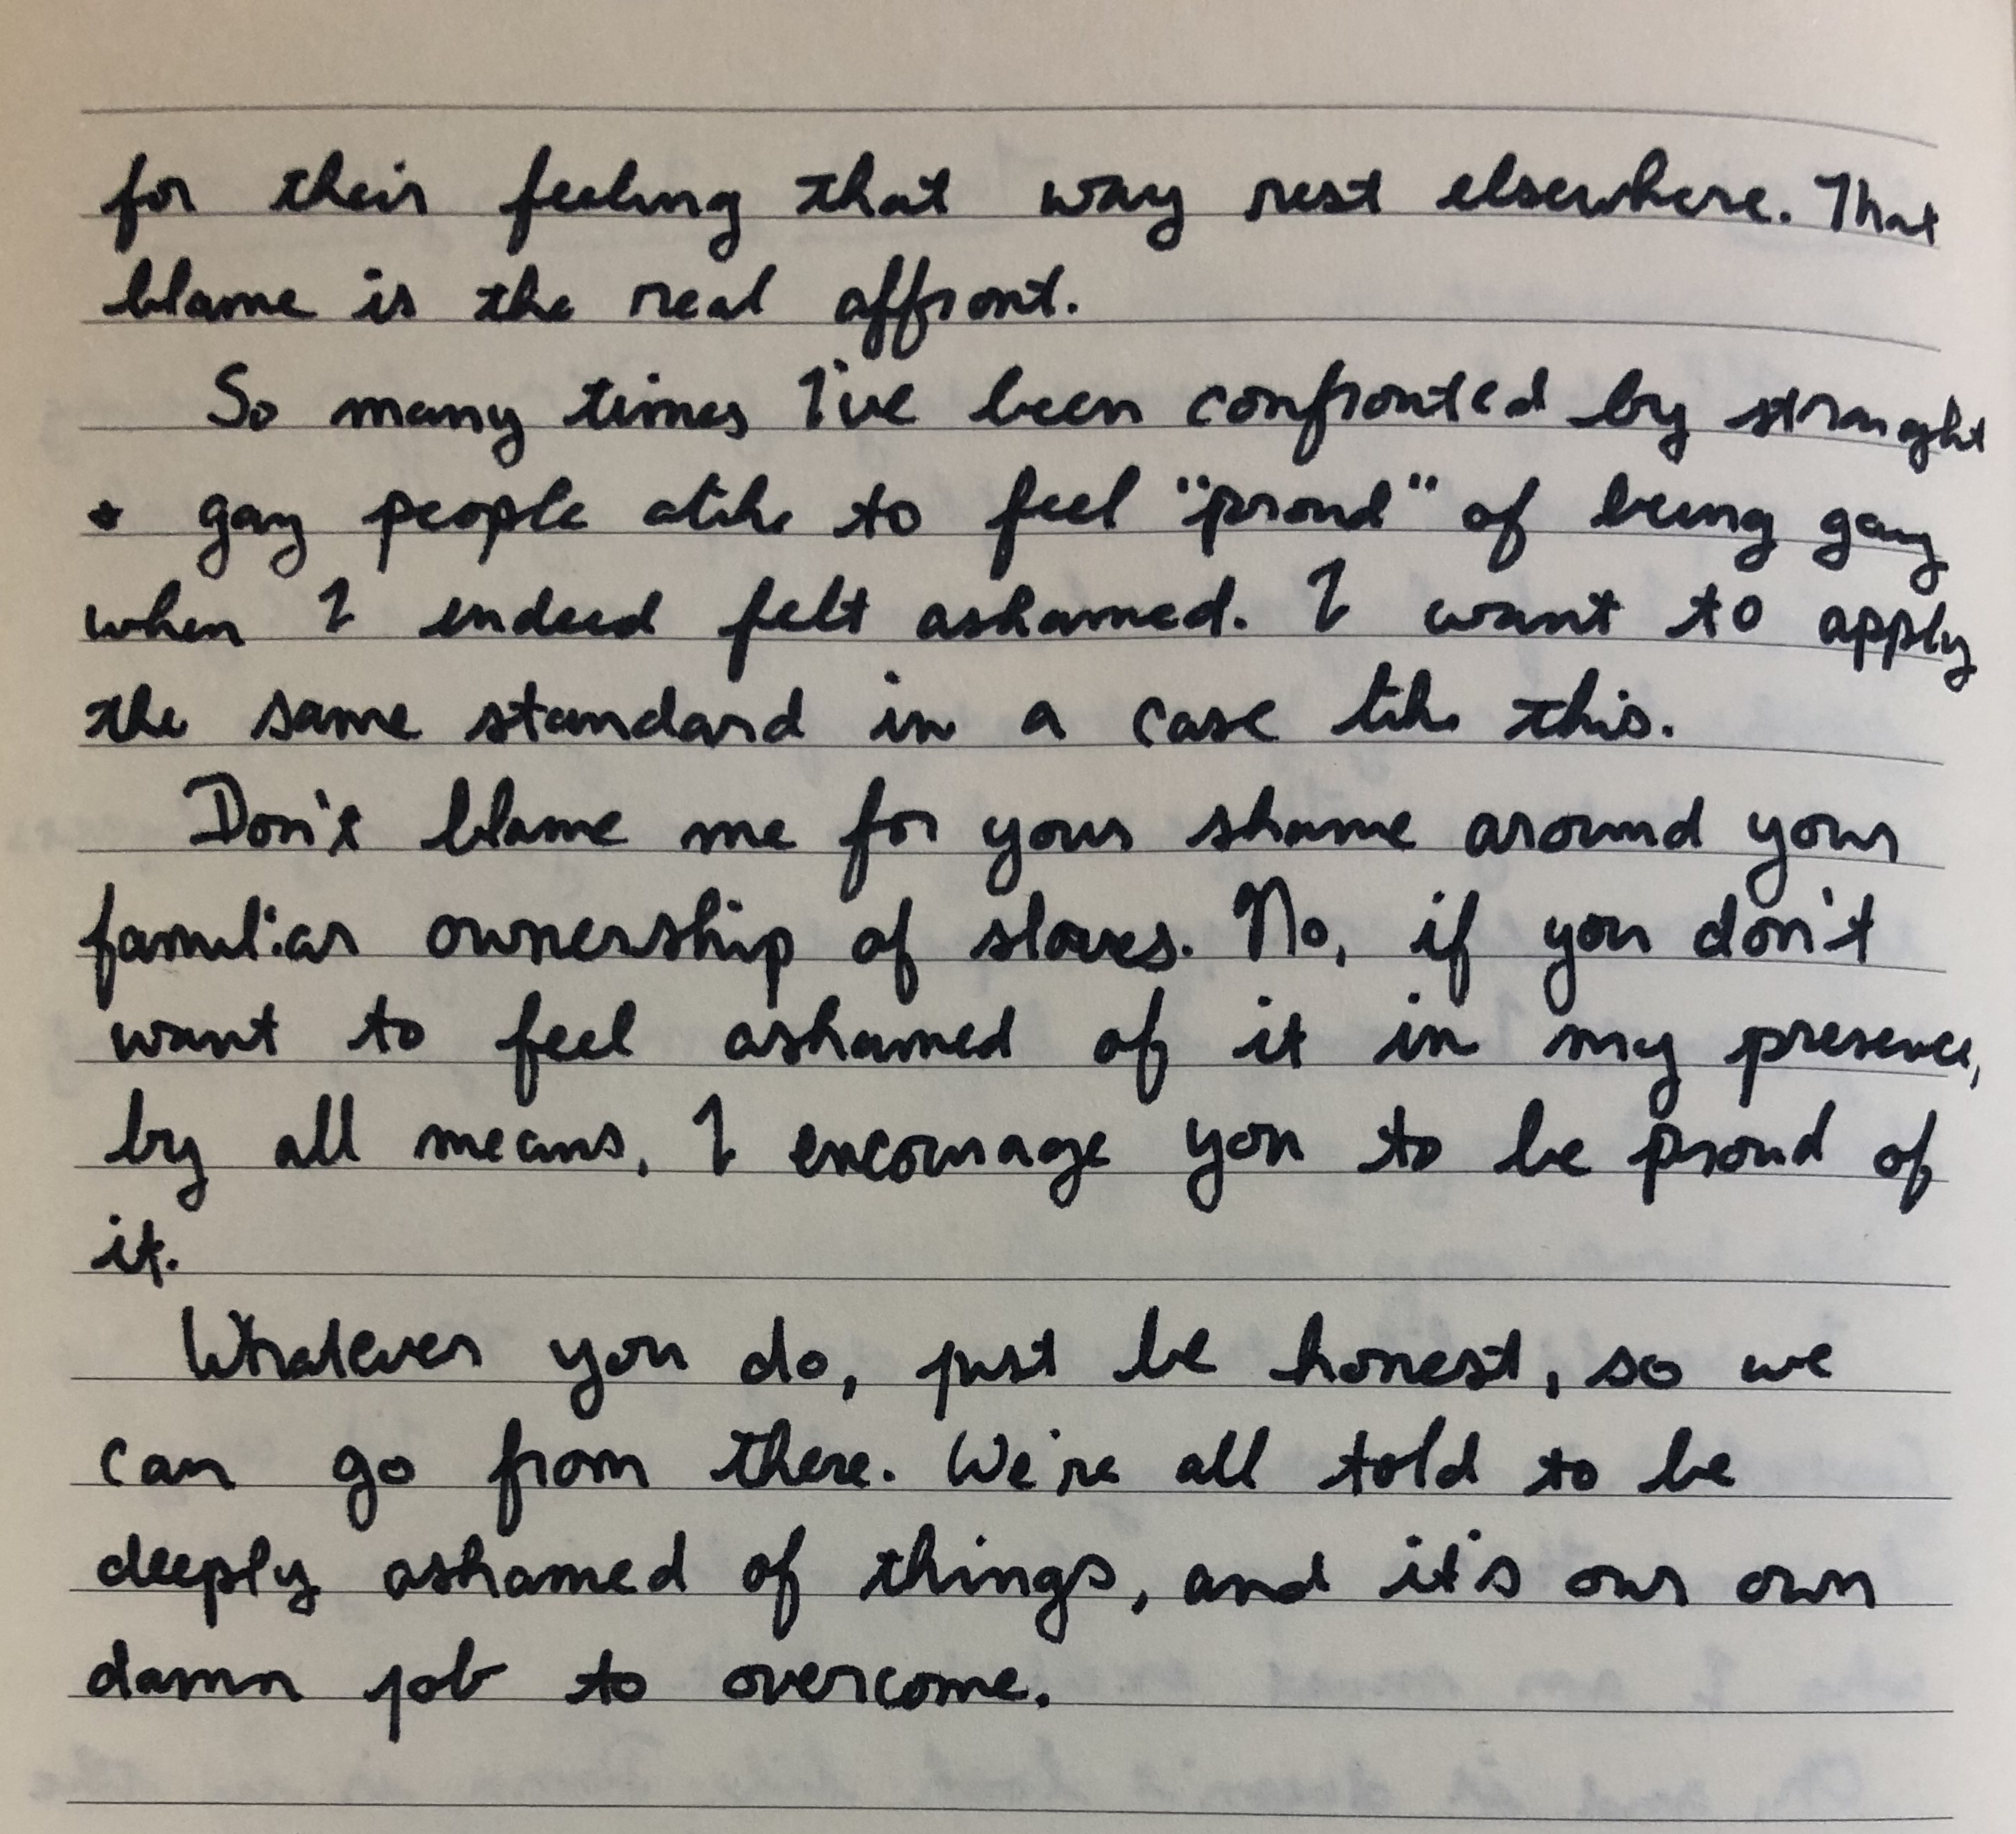 for their feeling that way rest elsewhere. That
blame is the real affront.
So many times I've been confronted by straight
+ gay people alike to feel "proud" of being gay
when I indeed felt ashamed. I want to apply
the same standard in a case like this.
Don't blame me for your shame around your
familiar ownership of slaves. No, if you don't
want to feel ashamed of it in my presence,
by all means, I encourage you to be proud of
it.
Whatever you do, just be honest, so we
can go from there. We're all told to be
deeply ashamed of things, and it's our own
damn job to overcome.